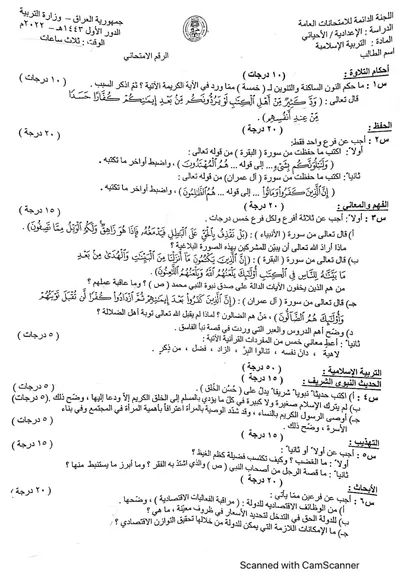 اللجنة الدائمة للامتحانات العامة
جمهورية العراق - وزارة التربية
الدراسة : الإعدادية / الأحيائي
الدور الأول ١٤٤٣هـ - ٢٠٢٢م
المادة : التربية الإسلامية
الوقت : ثلاث ساعات
اسم الطالب
الرقم الامتحاني
أحكام التلاوة : (١٠ درجات)
س١ : ما حكم النون الساكنة والتنوين لـ ( خمسة ) مما ورد في الآية الكريمة الآتية ؟ ثم اذكر السبب . (١٠ درجات)
قال تعالى : ( وَدَّ كَثِيرٌ مِّنْ أَهْلِ الْكِتَابِ لَوْ يَرُدُّونَكُم مِّن بَعْدِ إِيمَانِكُمْ كُفَّارًا حَسَدًا
مِّنْ عِندِ أَنفُسِهِم )
الحفظ : (٢٠ درجة)
س٢ : أجب عن فرع واحد فقط: (٢٠ درجة)
أولاً: اكتب ما حفظت من سورة ( البقرة ) من قوله تعالى :
( وَلَنَبْلُوَنَّكُم بِشَيْءٍ ... إلى قوله ... هُمُ الْمُهْتَدُونَ ) ، واضبط أواخر ما تكتبه .
ثانياً: اكتب ما حفظت من سورة ( آل عمران) من قوله تعالى :
( إِنَّ الَّذِينَ كَفَرُوا وَمَاتُوا ... إلى قوله ... هُمُ الظَّالِمُونَ ) ، واضبط أواخر ما تكتبه .
الفهم والمعاني : (٢٠ درجة)
س٣ : أولاً: أجب عن ثلاثة أفرع ولكل فرع خمس درجات . (١٥ درجة)
أ) قال تعالى من سورة ( الأنبياء ) : (بَلْ نَقْذِفُ بِالْحَقِّ عَلَى الْبَاطِلِ فَيَدْمَغُهُ فَإِذَا هُوَ زَاهِقٌ وَلَكُمُ الْوَيْلُ مِمَّا تَصِفُونَ) .
ماذا أراد الله تعالى أن يبيّن للمشركين بهذه الصورة البلاغية ؟
ب) قال تعالى من سورة ( البقرة ) : ( إِنَّ الَّذِينَ يَكْتُمُونَ مَا أَنزَلْنَا مِنَ الْبَيِّنَاتِ وَالْهُدَىٰ مِن بَعْدِ
مَا بَيَّنَّاهُ لِلنَّاسِ فِي الْكِتَابِ أُولَٰئِكَ يَلْعَنُهُمُ اللَّهُ وَيَلْعَنُهُمُ اللَّاعِنُونَ )
من هم الذين يخفون الآيات الدالة على صدق نبوة النبي محمد ( ص ) ؟ وما عاقبة عملهم ؟
ج) قال تعالى من سورة ( آل عمران ) : ( إِنَّ الَّذِينَ كَفَرُوا بَعْدَ إِيمَانِهِمْ ثُمَّ ازْدَادُوا كُفْرًا لَّن تُقْبَلَ تَوْبَتُهُمْ
وَأُولَٰئِكَ هُمُ الضَّالُّونَ ) ، مَن هم الضالون ؟ لماذا لم يقبل الله تعالى توبة أهل الضلالة ؟
د) وضّح أهم الدروس والعبر التي وردت في قصة نبأ الفاسق .
ثانياً : أعطِ معاني خمس من المفردات القرآنية الآتية : (٥ درجات)
لاهية ، دان نفسه ، تنالوا البرّ ، الزاد ، فضل ، من ذِكرٍ .
التربية الإسلامية : (٥٠ درجة)
الحديث النبوي الشريف : (١٥ درجة)
س٤ : أ) اكتب حديثاً نبوياً شريفاً يدلّ على ( حُسْن الخُلق ) . (٥ درجات)
ب) لم يترك الإسلام صغيرة ولا كبيرة في كلّ ما يؤدي بالمسلم إلى الخلق الكريم إلّا ودعا إليها ، وضّح ذلك. (٥ درجات)
ج) أوصى الرسول الكريم بالنساء ، وقد شدّد الوصية بالمرأة اعترافاً بأهمية المرأة في المجتمع وفي بناء
الأسرة ، وضّح ذلك . (٥ درجات)
التهذيب : (١٥ درجة)
س٥ : أجب عن أولاً أو ثانياً : (١٥ درجة)
أولاً : ما الغضب ؟ وكيف تكتسب فضيلة كظم الغيظ ؟
ثانياً : ما قصة الرجل من أصحاب النبي (ص ) والذي اشتد به الفقر ؟ وما أبرز ما يستنبط منها ؟
الأبحاث : (٢٠ درجة)
س٦ : أجب عن فرعين ممّا يأتي : (٢٠ درجة)
أ) من الوظائف الاقتصادية للدولة : ( مراقبة الفعاليات الاقتصادية ) ، وضّحها .
ب) للدولة الحق في التدخل لتحديد الأسعار في ظروف معيّنة ، ما هي ؟
ج) ما الإمكانات اللازمة التي يمكن للدولة من خلالها تحقيق التوازن الاقتصادي ؟
Scanned with CamScanner